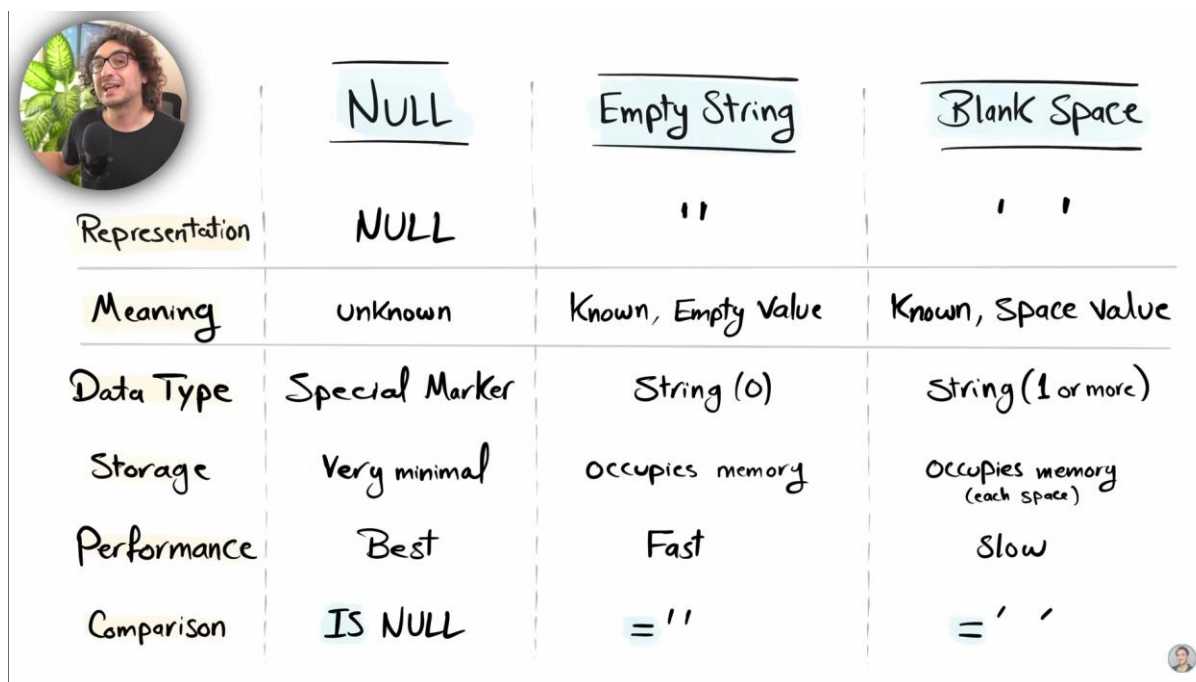 NULL Empty String Blank Space
Representation NULL '' ' '
Meaning unknown Known, Empty Value Known, Space Value
Data Type Special Marker String (0) String (1 or more)
Storage Very minimal Occupies memory Occupies memory
(each space)
Performance Best Fast Slow
Comparison IS NULL = '' = ' '